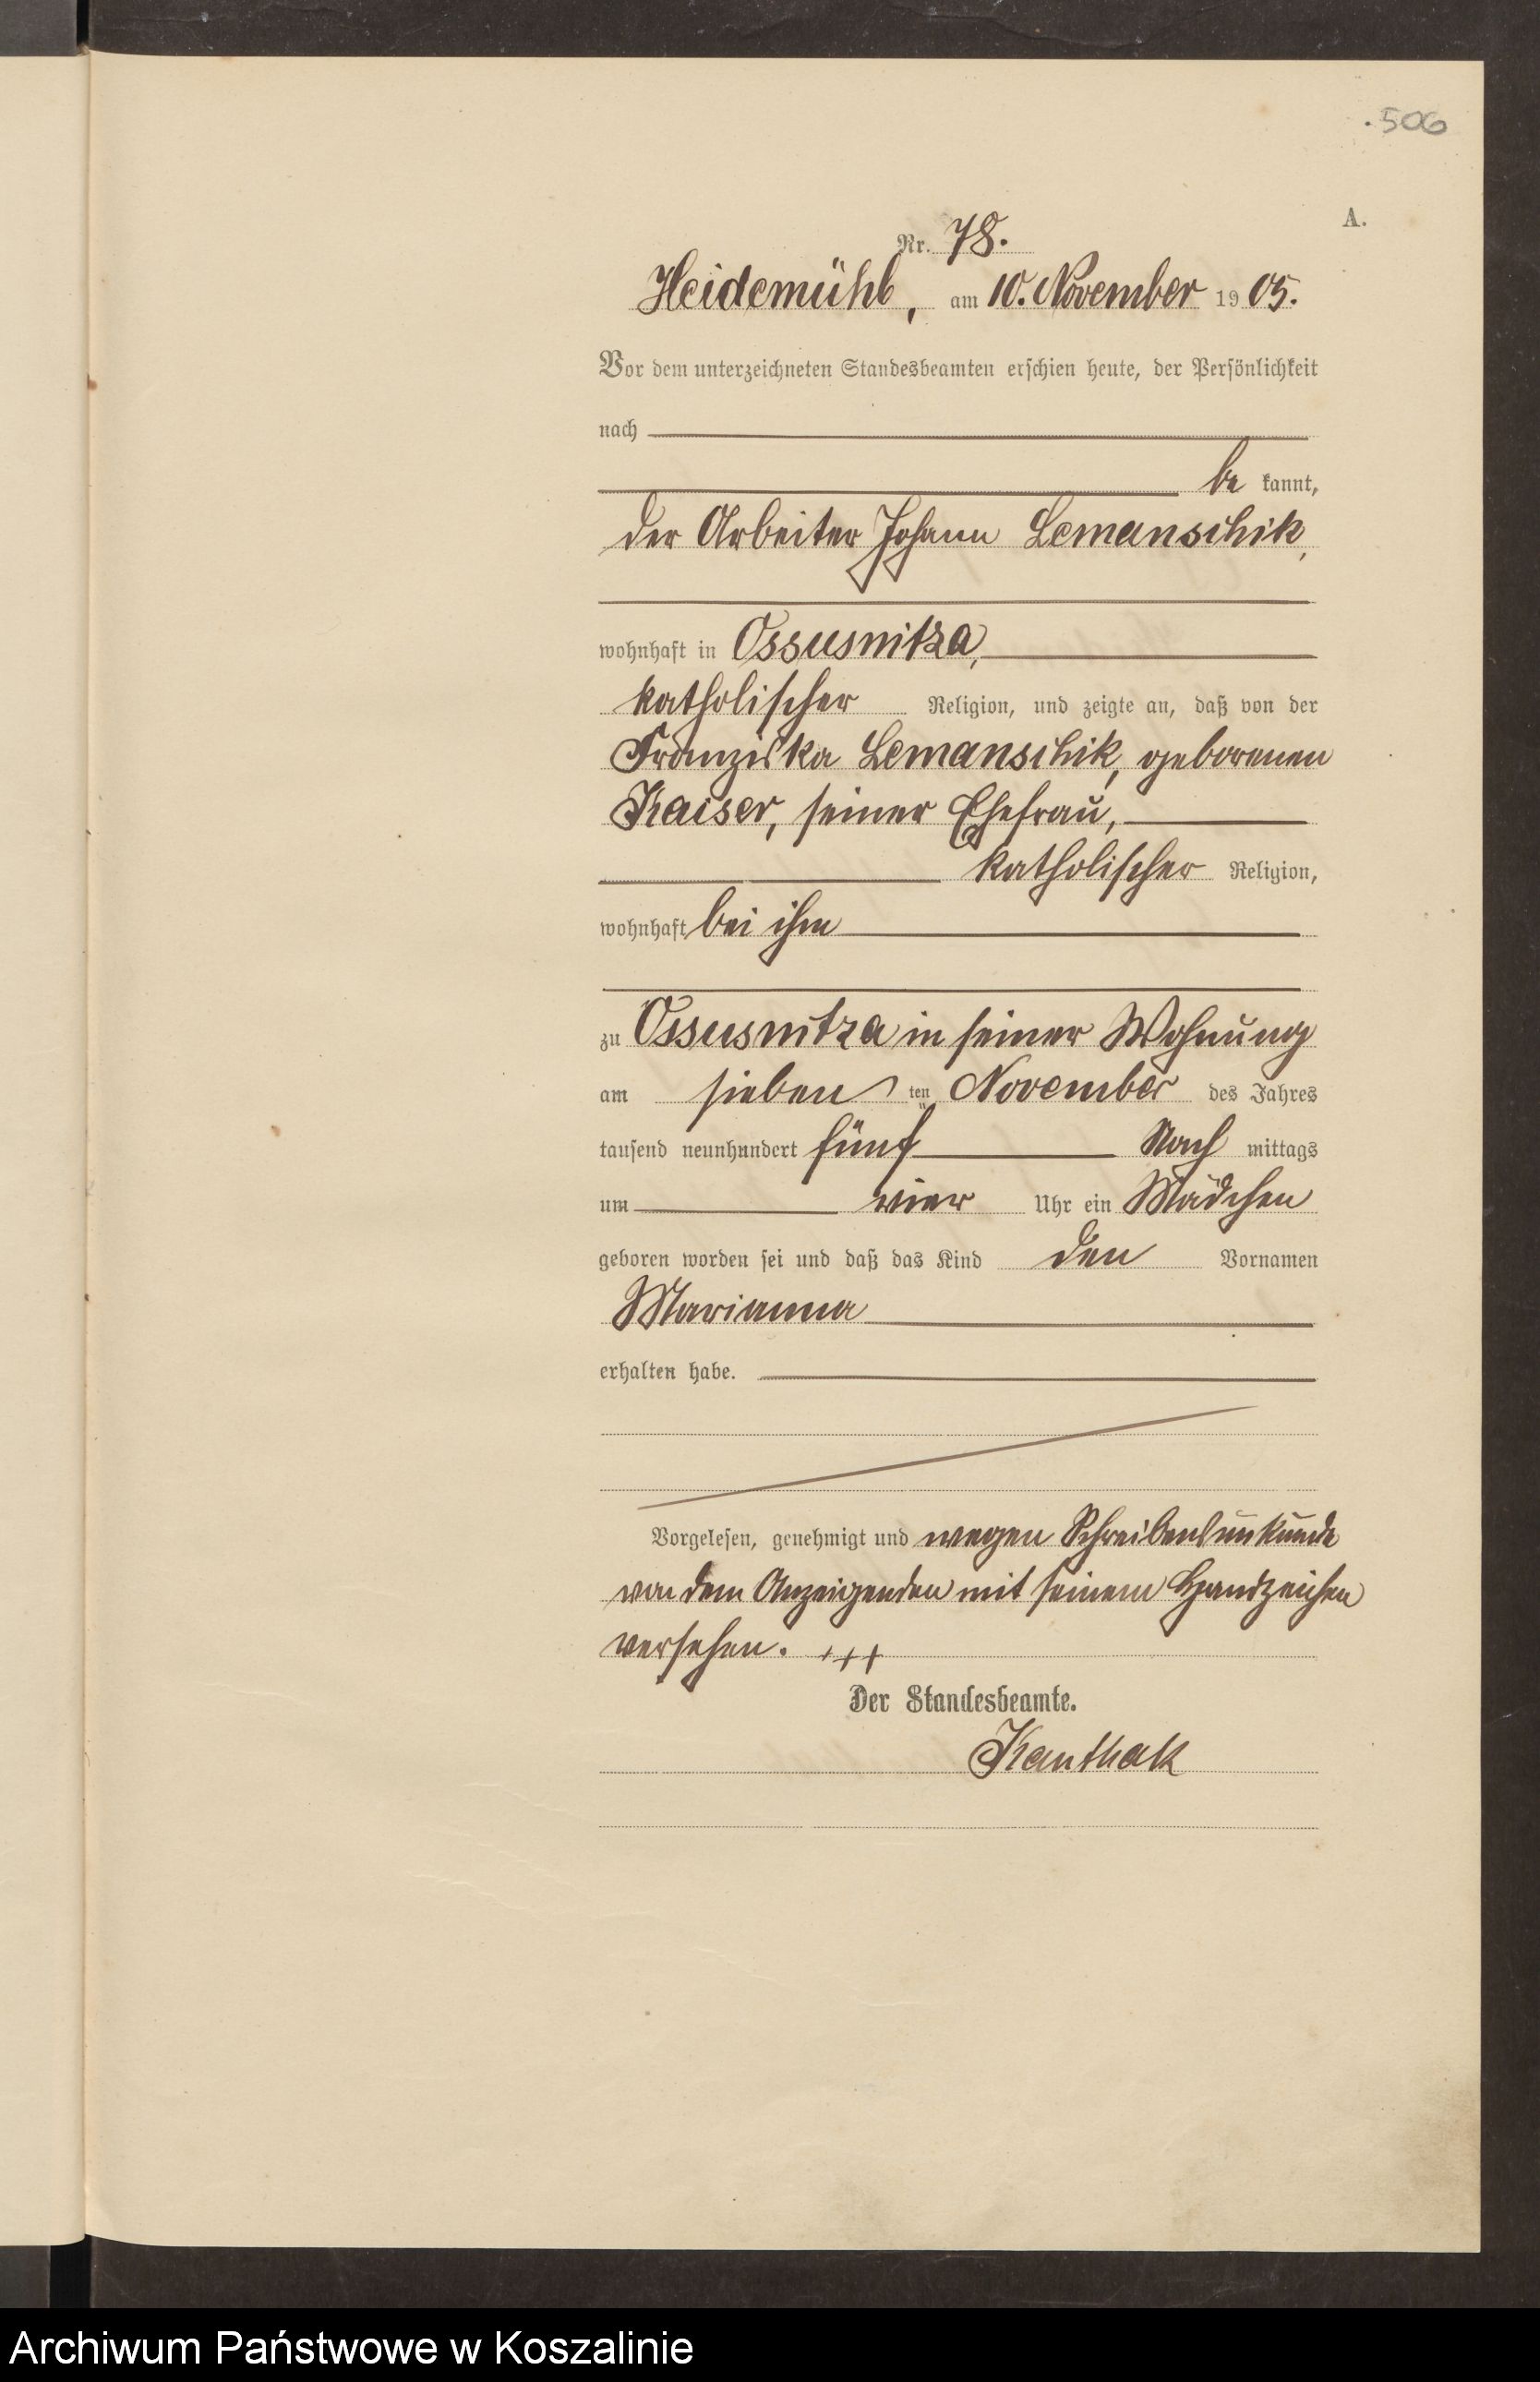 506
A.
Nr. 78.
Heidemühl, am 10. November 1905.
Vor dem unterzeichneten Standesbeamten erschien heute, der Persönlichkeit
nach
be kannt,
der Arbeiter Johann Lemanschik,
wohnhaft in Ossusnitza,
katholischer Religion, und zeigte an, daß von der
Franziska Lemanschik, geborenen
Kaiser, seiner Ehefrau,
katholischer Religion,
wohnhaft bei ihm
zu Ossusnitza in seiner Wohnung
am sieben ten November des Jahres
tausend neunhundert fünf Nach mittags
um vier Uhr ein Mädchen
geboren worden sei und daß das Kind den Vornamen
Marianna
erhalten habe.
Vorgelesen, genehmigt und wegen Schreibensunkunde
von dem Anzeigenden mit seinem Handzeichen
versehen. +++
Der Standesbeamte.
Kanthak
Archiwum Państwowe w Koszalinie